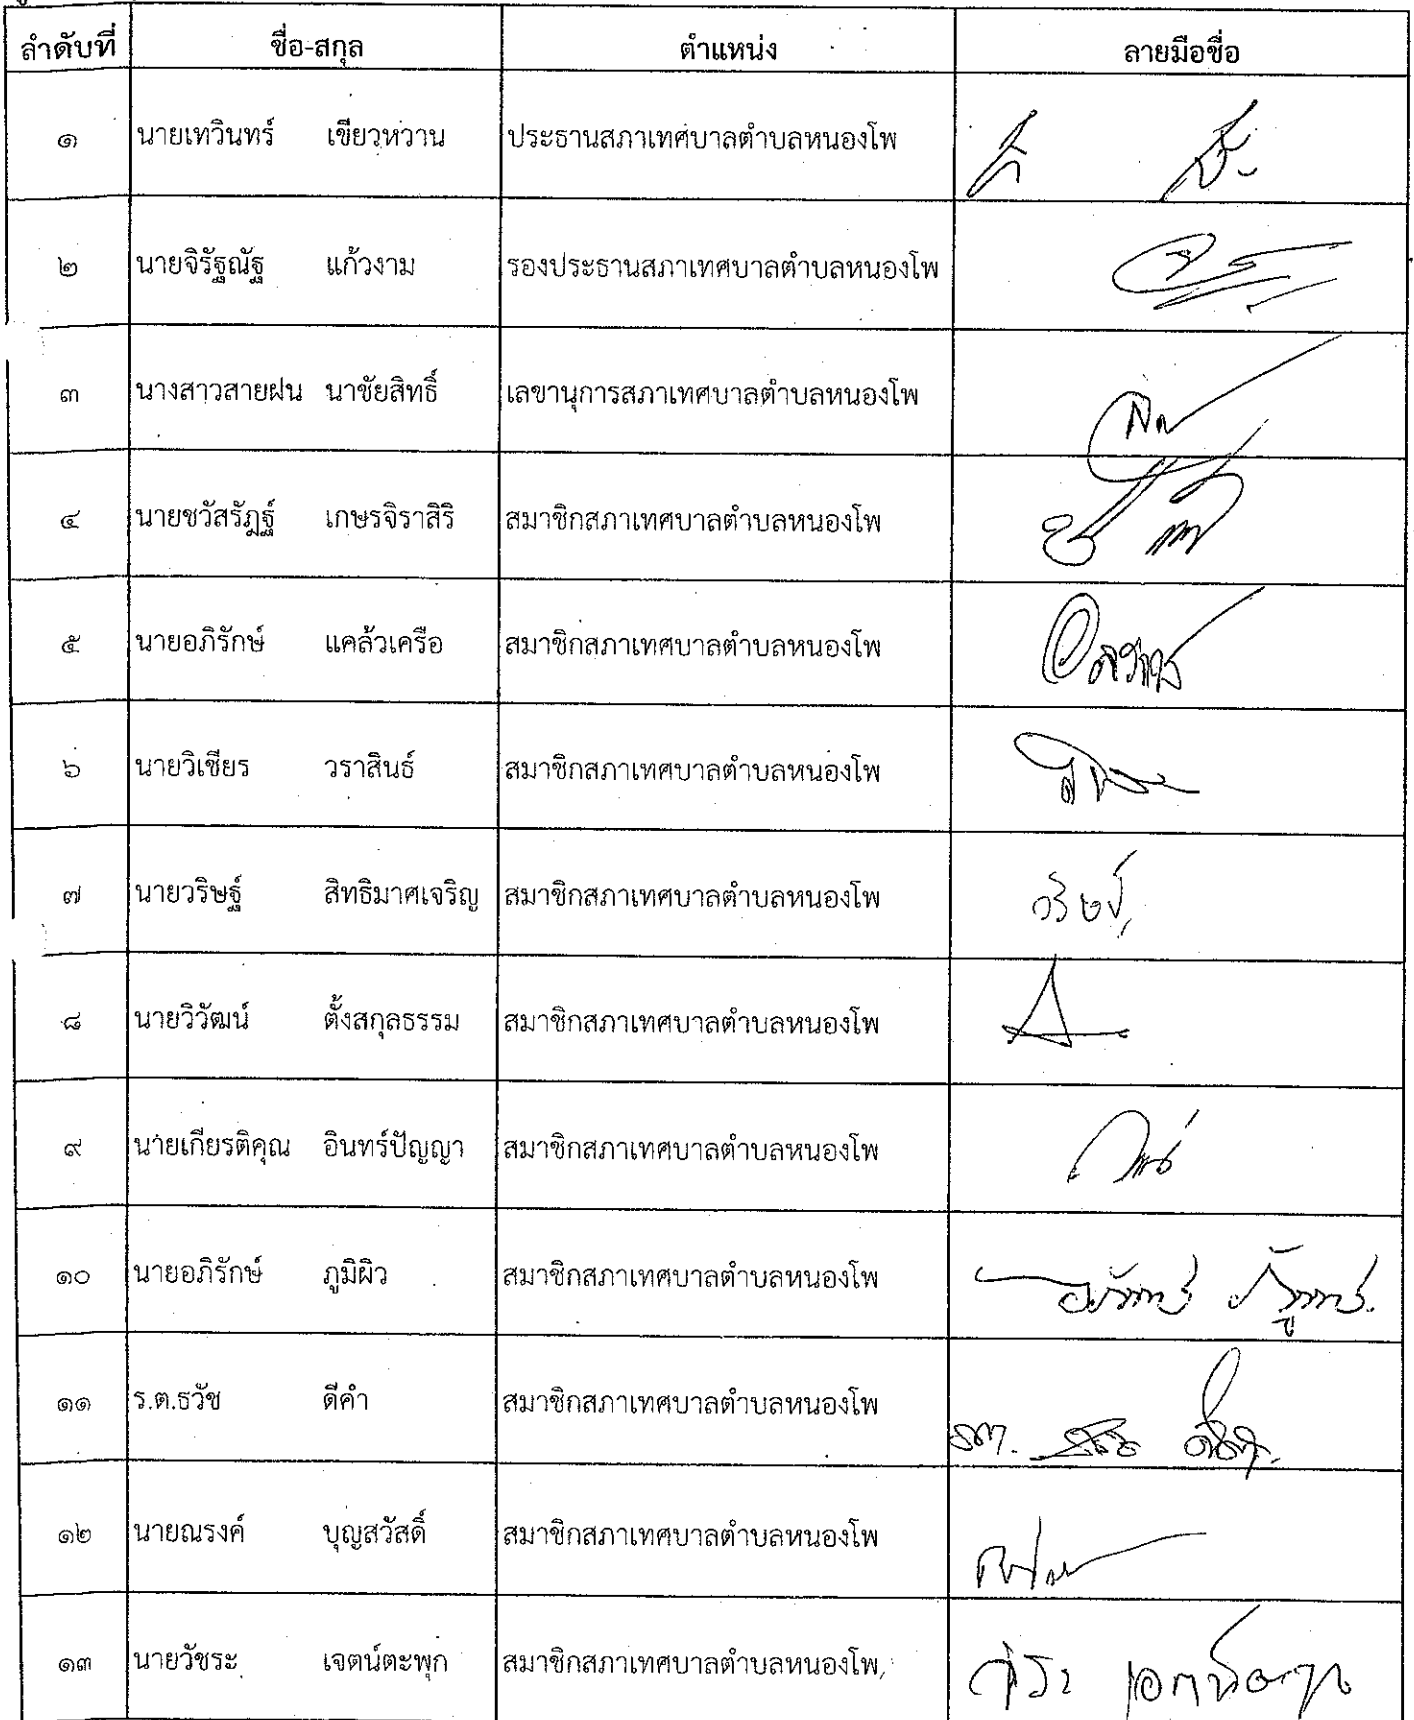 ลำดับที่ ชื่อ-สกุล ตำแหน่ง ลายมือชื่อ
๑ นายเทวินทร์ เขียวหวาน ประธานสภาเทศบาลตำบลหนองโพ
๒ นายจิรัฐณัฐ แก้วงาม รองประธานสภาเทศบาลตำบลหนองโพ
๓ นางสาวสายฝน นาชัยสิทธิ์ เลขานุการสภาเทศบาลตำบลหนองโพ
๔ นายชวัสรัฎฐ์ เกษรจิราสิริ สมาชิกสภาเทศบาลตำบลหนองโพ
๕ นายอภิรักษ์ แคล้วเครือ สมาชิกสภาเทศบาลตำบลหนองโพ
๖ นายวิเชียร วราสินธ์ สมาชิกสภาเทศบาลตำบลหนองโพ
๗ นายวริษฐ์ สิทธิมาศเจริญ สมาชิกสภาเทศบาลตำบลหนองโพ วริษฐ์
๘ นายวิวัฒน์ ตั้งสกุลธรรม สมาชิกสภาเทศบาลตำบลหนองโพ
๙ นายเกียรติคุณ อินทร์ปัญญา สมาชิกสภาเทศบาลตำบลหนองโพ
๑๐ นายอภิรักษ์ ภูมิผิว สมาชิกสภาเทศบาลตำบลหนองโพ
๑๑ ร.ต.ธวัช ดีคำ สมาชิกสภาเทศบาลตำบลหนองโพ
๑๒ นายณรงค์ บุญสวัสดิ์ สมาชิกสภาเทศบาลตำบลหนองโพ
๑๓ นายวัชระ เจตน์ตะพุก สมาชิกสภาเทศบาลตำบลหนองโพ